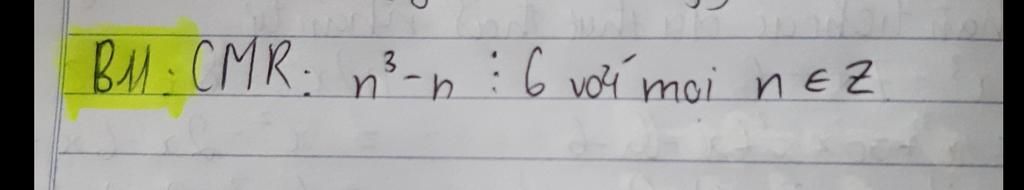 B11: CMR: n³ - n ⋮ 6 với mọi n ∈ Z